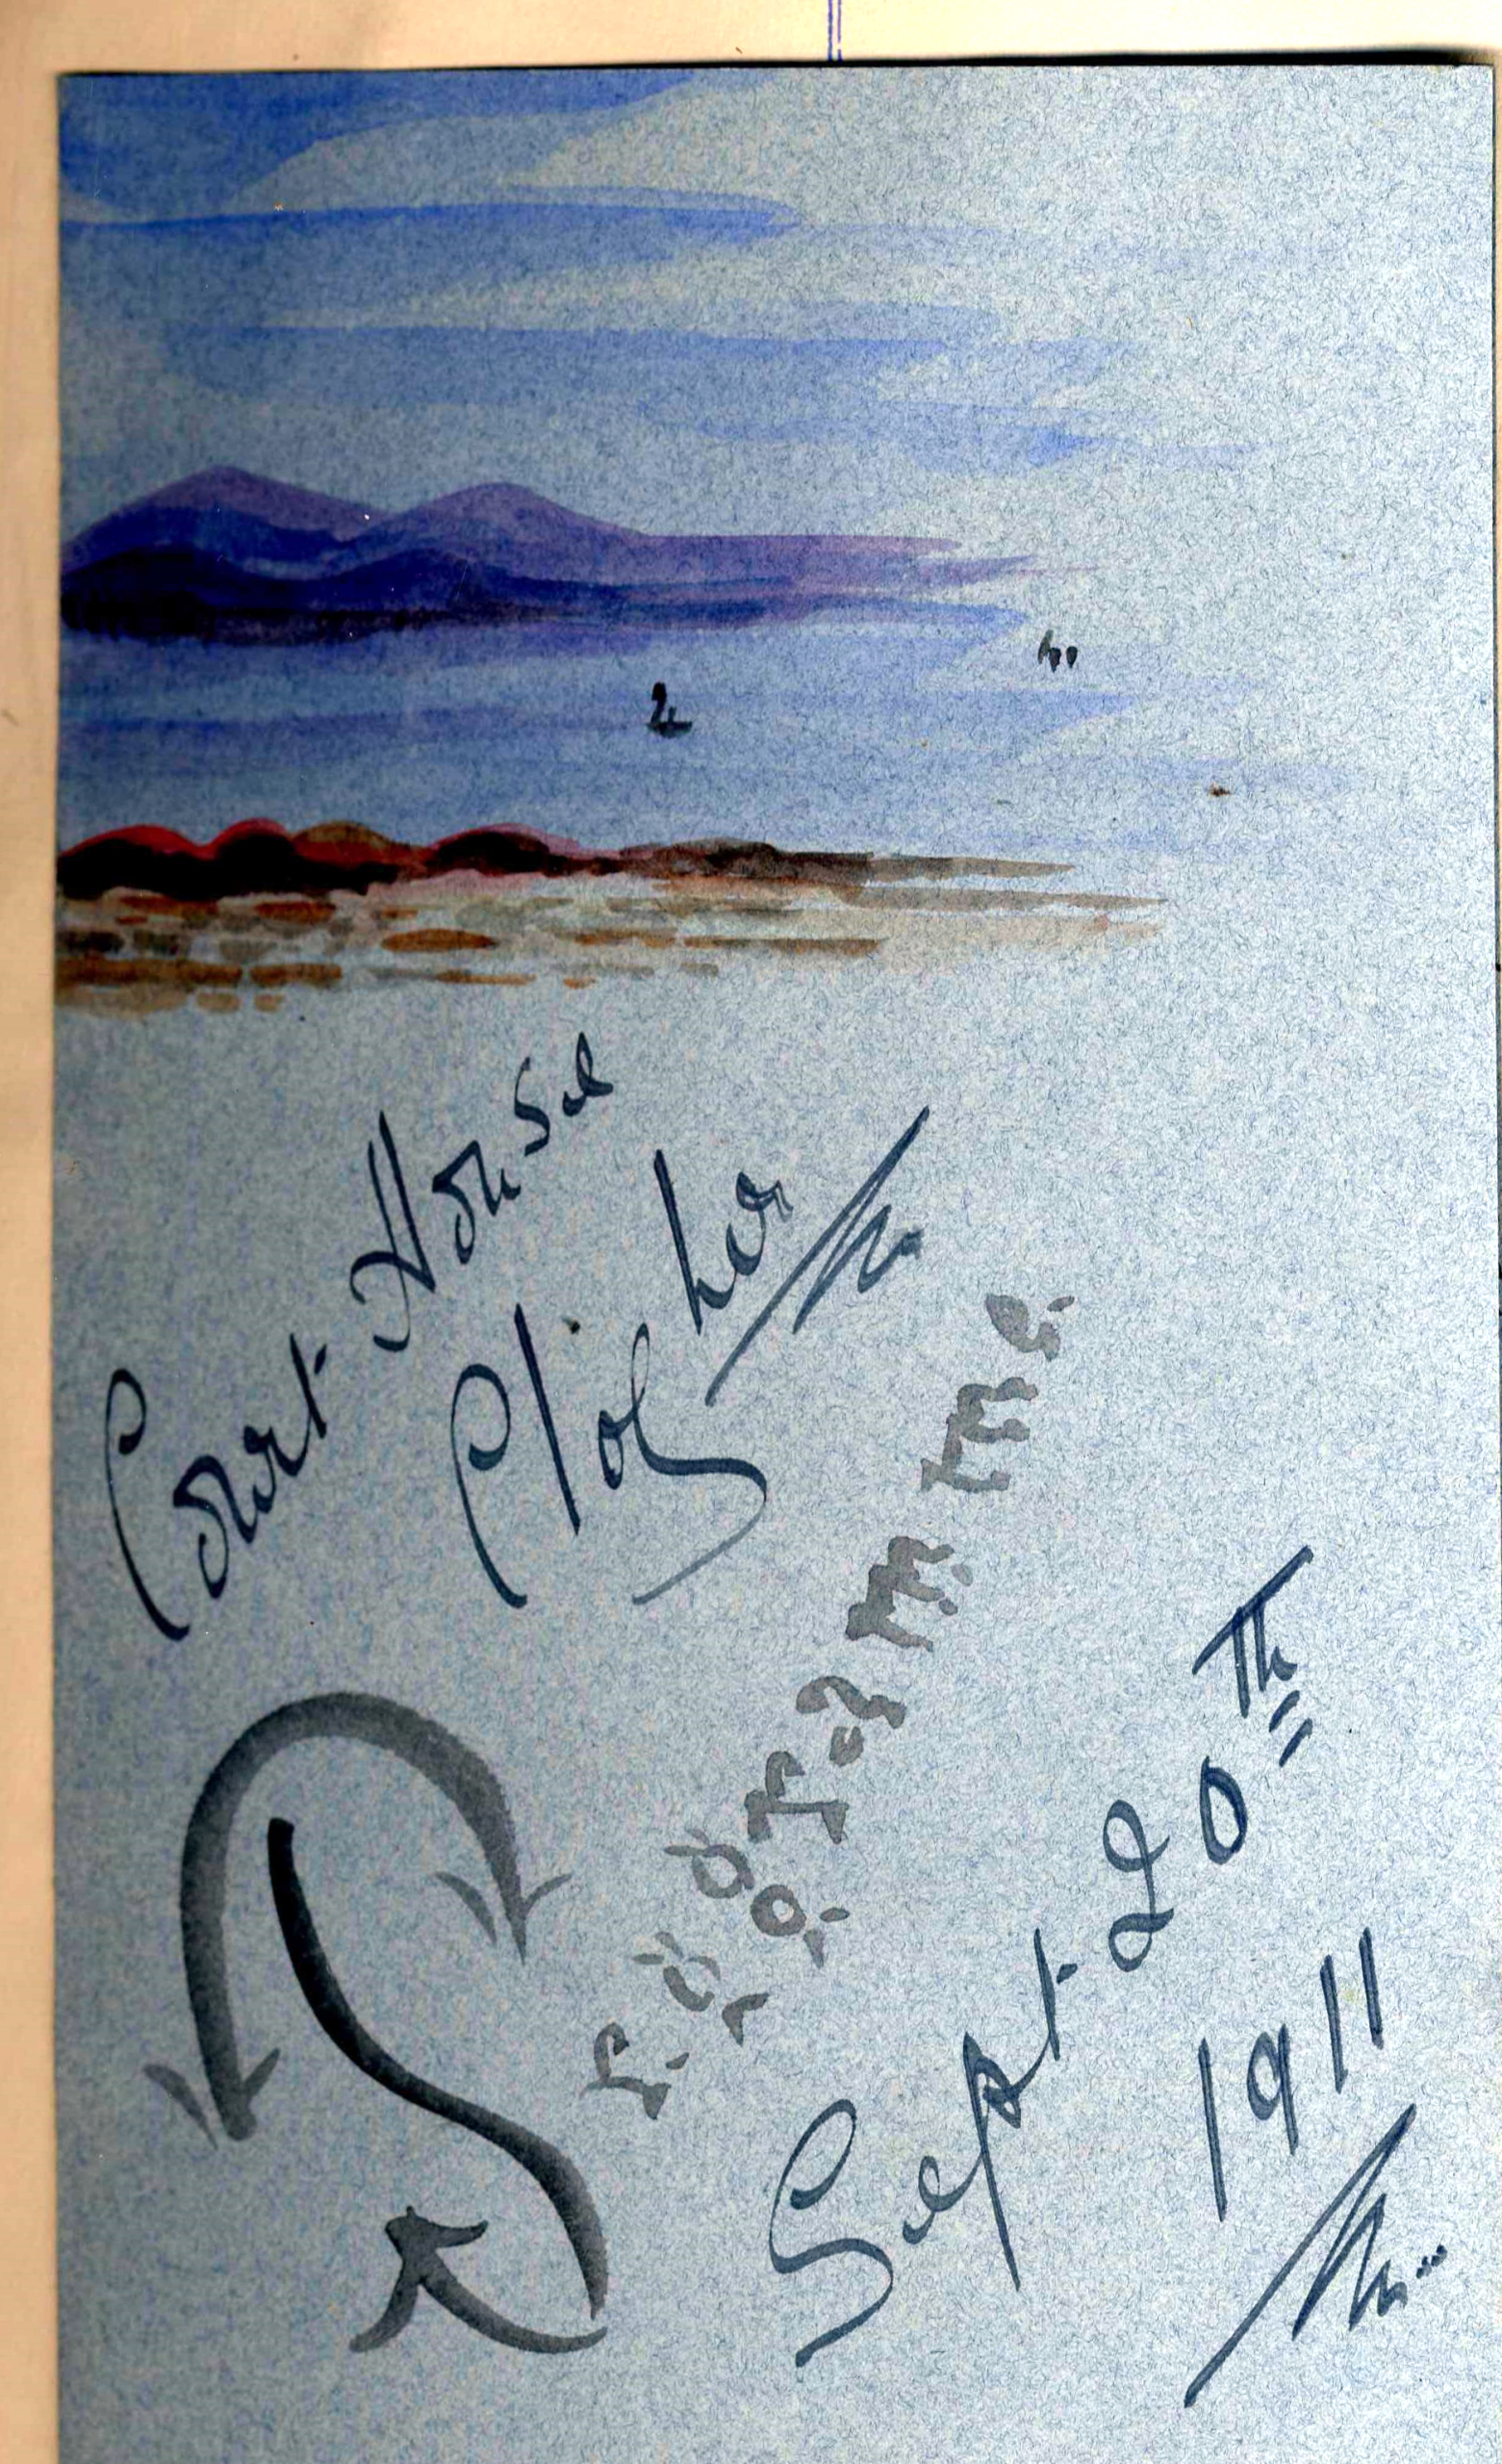 Court House
Clogher
Programme
Sept 20Th
1911